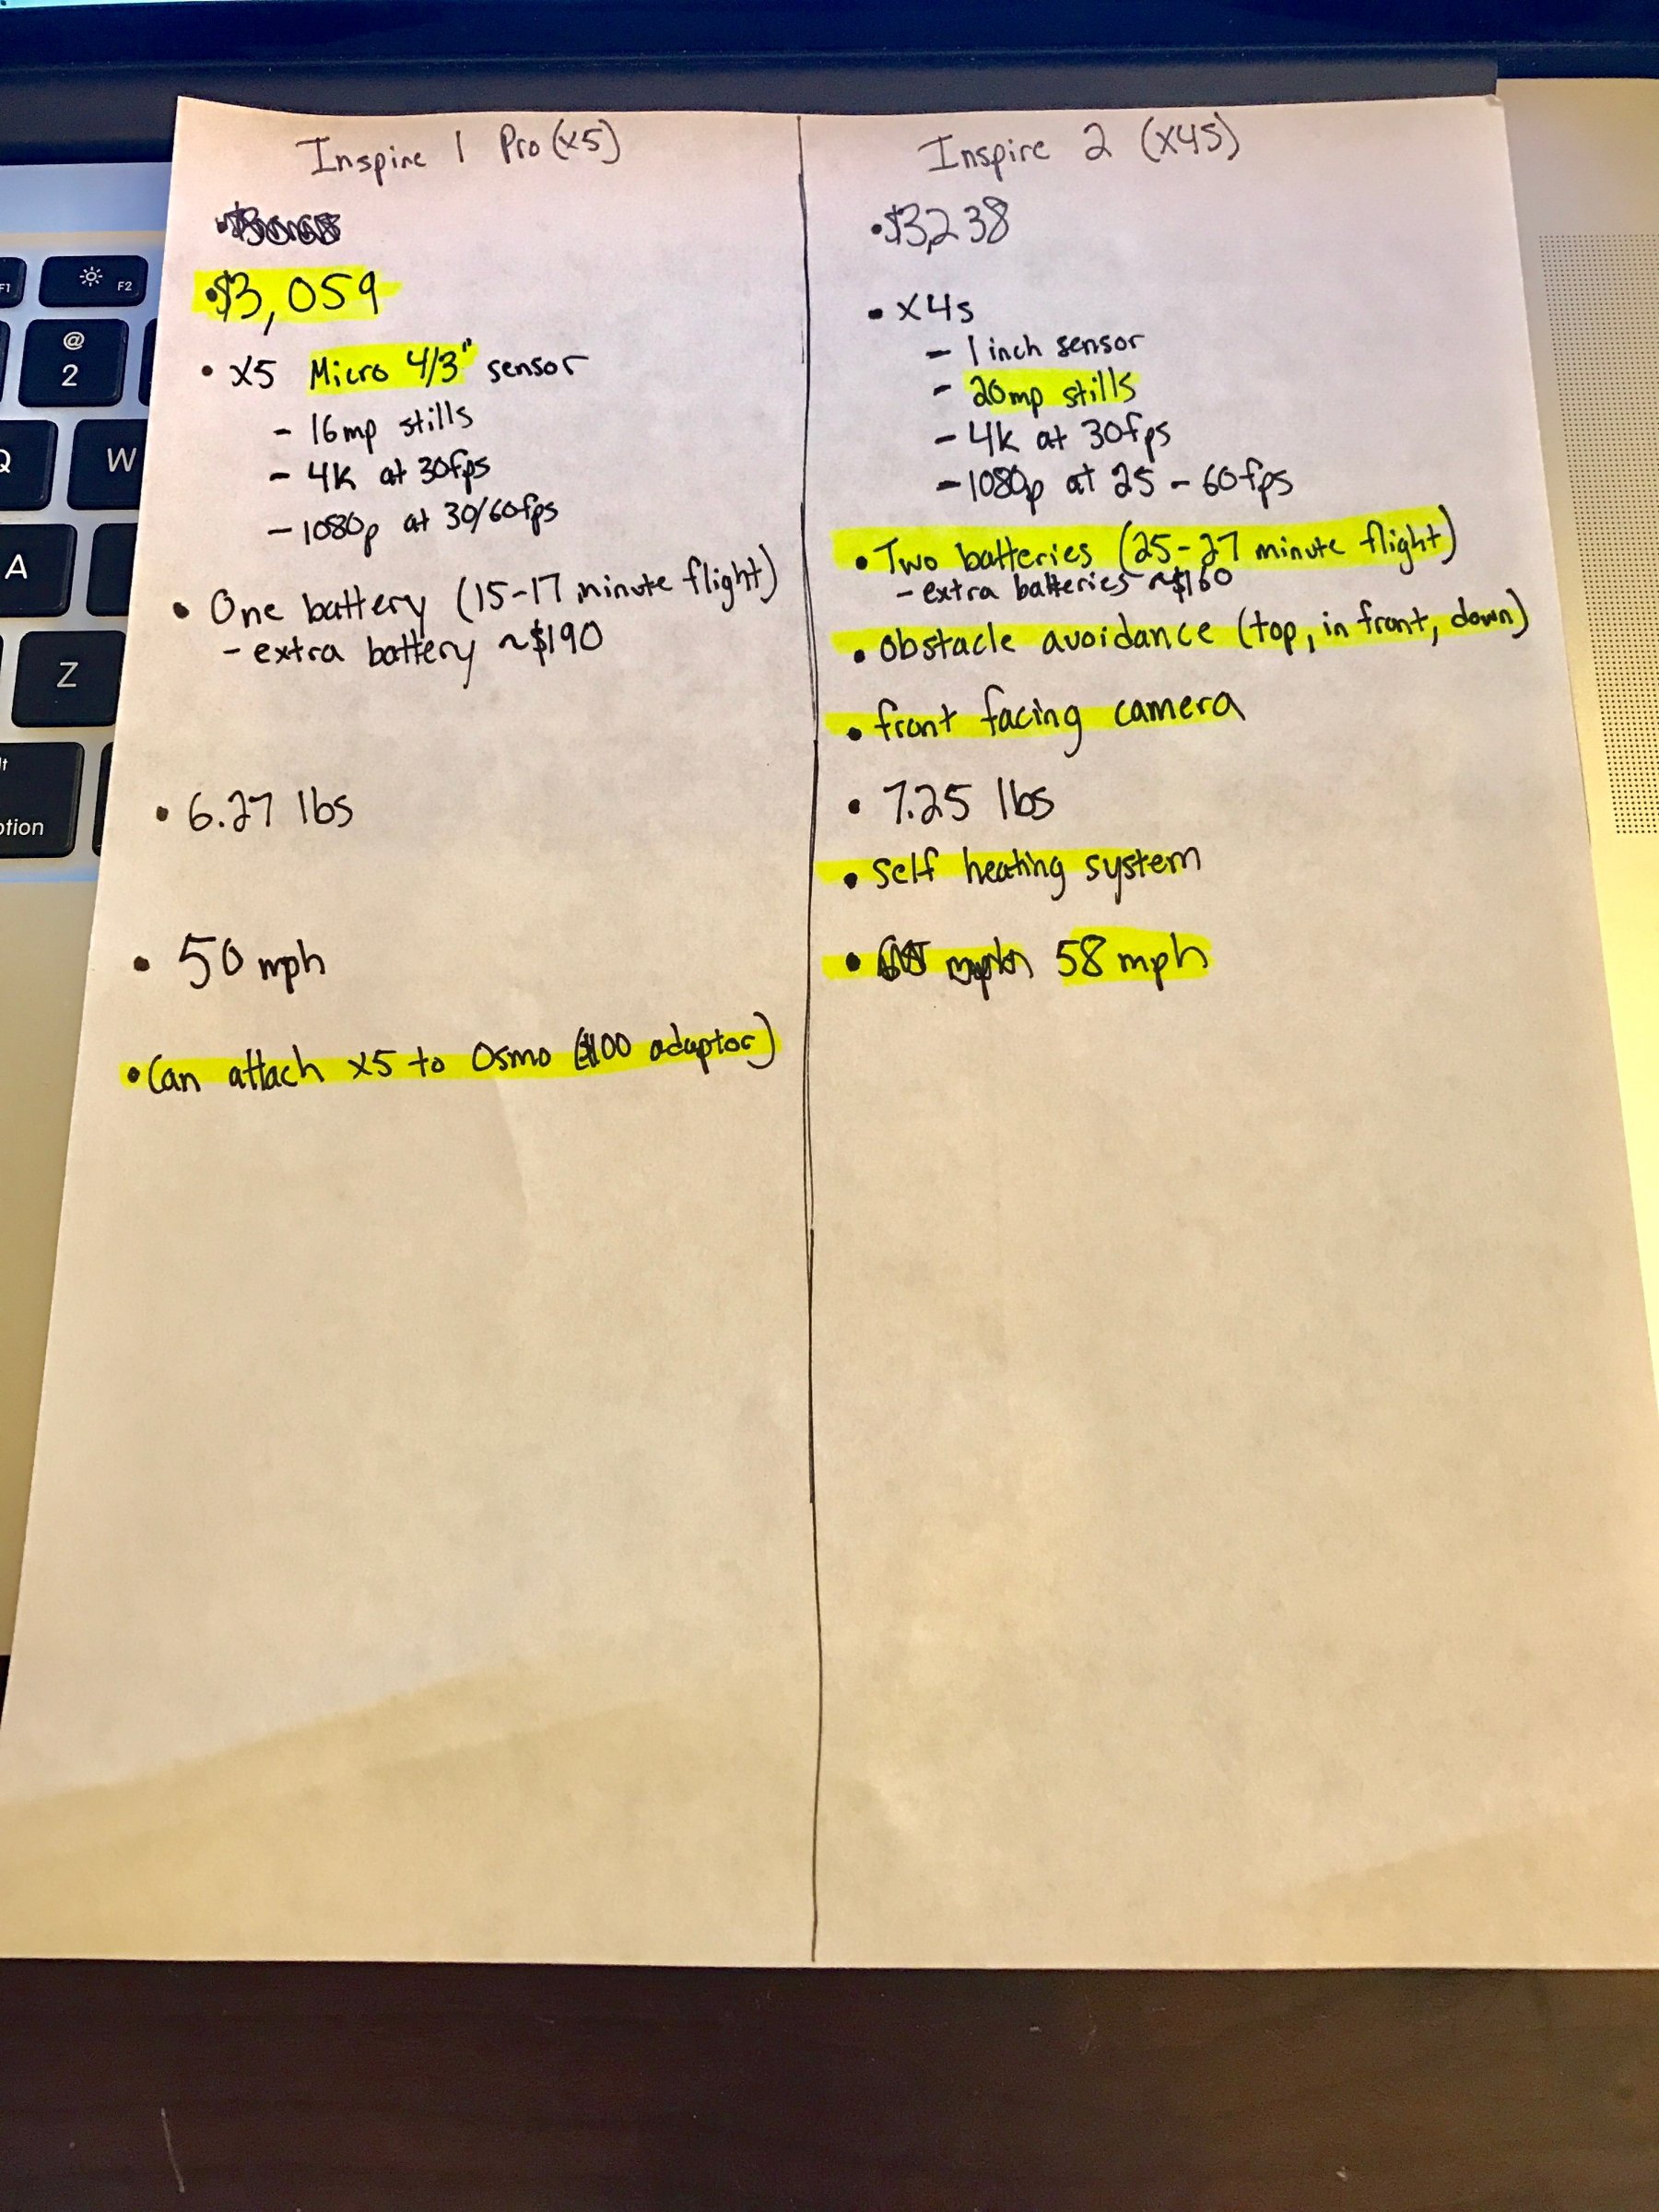 Inspire 1 Pro (x5)
• $3,059
• x5 Micro 4/3" sensor
- 16mp stills
- 4K at 30fps
- 1080p at 30/60fps
• One battery (15-17 minute flight)
- extra battery ~$190
• 6.27 lbs
• 50 mph
• Can attach x5 to Osmo ($100 adaptor)
Inspire 2 (x4s)
• $3,238
• x4s
- 1 inch sensor
- 20mp stills
- 4K at 30fps
- 1080p at 25-60fps
• Two batteries (25-27 minute flight)
- extra batteries ~$160
• obstacle avoidance (top, in front, down)
• front facing camera
• 7.25 lbs
• Self heating system
• 58 mph
F1
F2
@
2
Q
W
A
Z